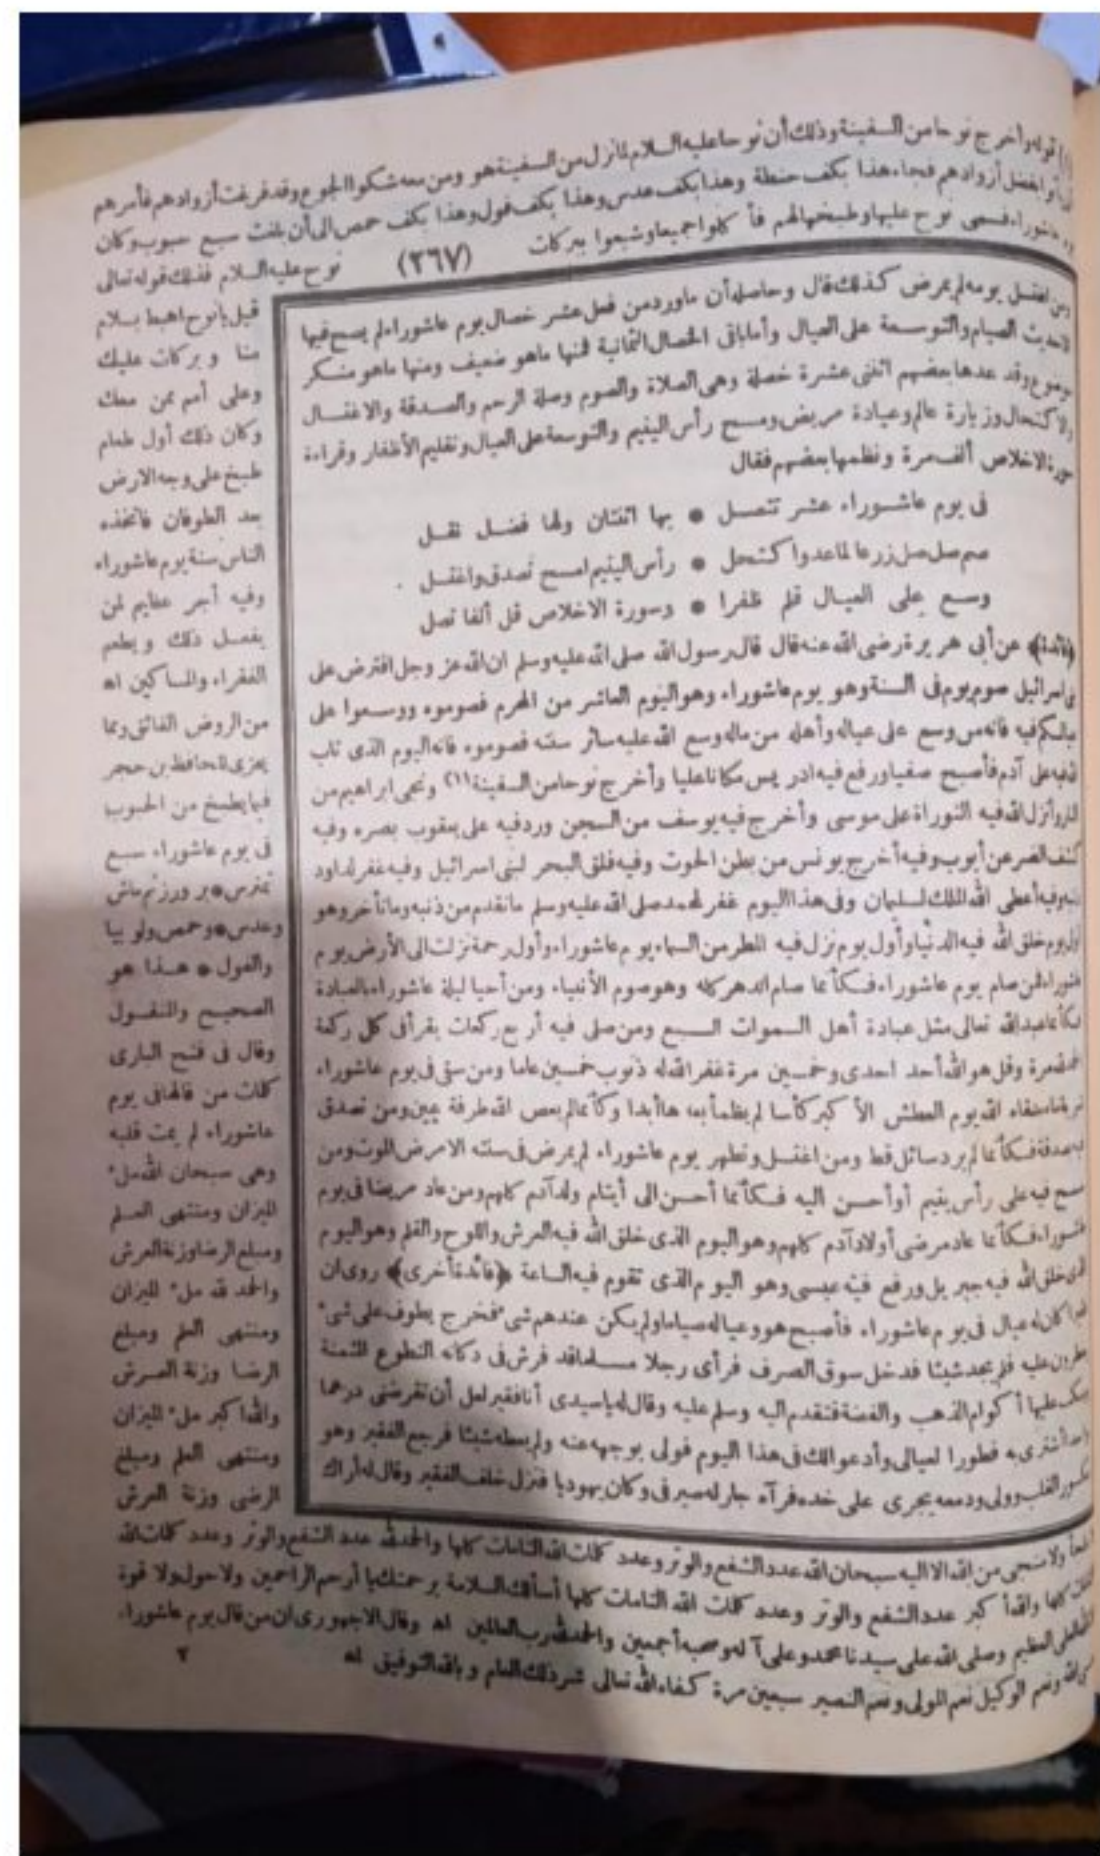 (١) قوله وأخرج نوحا من السفينة وذلك أن نوحا عليه السلام لما نزل من السفينة هو ومن معه شكوا الجوع وقد فرغت أزوادهم فأمرهم
أن يأتوا بفضل أزوادهم فجاء هذا بكف حنطة وهذا بكف عدس وهذا بكف فول وهذا بكف حمص الى أن بلغت سبع حبوب وكان
يوم عاشوراء فسمى نوح عليها وطبخها لهم فأكلوا جميعا وشبعوا ببركات
(٢٦٧)
نوح عليه السلام فذلك قوله تعالى
قيل يا نوح اهبط بسلام
منا وبركات عليك
وعلى أمم ممن معك
وكان ذلك أول طعام
طبخ على وجه الارض
بعد الطوفان فاتخذه
الناس سنة يوم عاشوراء
وفيه أجر عظيم لمن
يفعل ذلك ويطعم
الفقراء والمساكين اه
من الروض الفائق ومما
يعزى للحافظ بن حجر
فيما يطبخ من الحبوب
فى يوم عاشوراء سبع
تهترس * بر ورز ثم ماش
وعدس * وحمص ولوبيا
والفول * هذا هو
الصحيح والمنقول
وقال فى فتح البارى
كلمات من قالها فى يوم
عاشوراء لم يمت قلبه
وهى سبحان الله ملء
الميزان ومنتهى العلم
ومبلغ الرضا وزنة العرش
والحمد لله ملء الميزان
ومنتهى العلم ومبلغ
الرضا وزنة العرش
والله اكبر ملء الميزان
ومنتهى العلم ومبلغ
الرضى وزنة العرش
ومن اغتسل يومه لم يمرض كذلك قال وحاصله أن ما ورد من فعل عشر خصال يوم عاشوراء لم يصح فيها
الا حديث الصيام والتوسعة على العيال وأما باقى الخصال الثمانية فمنها ما هو ضعيف ومنها ما هو منكر
موضوع وقد عدها بعضهم اثنتى عشرة خصلة وهى الصلاة والصوم وصلة الرحم والصدقة والاغتسال
والاكتحال وزيارة عالم وعيادة مريض ومسح رأس اليتيم والتوسعة على العيال وتقليم الأظفار وقراءة
سورة الاخلاص ألف مرة ونظمها بعضهم فقال
فى يوم عاشوراء عشر تتصل * بها اثنتان ولها فضل نقل
صم صل صل زر عالما عد واكتحل * رأس اليتيم امسح تصدق واغتسل
وسع على العيال قلم ظفرا * وسورة الاخلاص قل ألفا تصل
﴿فائدة﴾ عن أبى هريرة رضى الله عنه قال قال رسول الله صلى الله عليه وسلم ان الله عز وجل افترض على
بنى اسرائيل صوم يوم فى السنة وهو يوم عاشوراء وهو اليوم العاشر من المحرم فصوموه ووسعوا على
عيالكم فيه فانه من وسع على عياله وأهله من ماله وسع الله عليه سائر سنته فصوموه فانه اليوم الذى تاب
الله فيه على آدم فأصبح صفيا ورفع فيه ادريس مكانا عليا وأخرج نوحا من السفينة (١) ونجى ابراهيم من
النار وأنزل الله فيه التوراة على موسى وأخرج فيه يوسف من السجن ورد فيه على يعقوب بصره وفيه
كشف الضر عن أيوب وفيه أخرج يونس من بطن الحوت وفيه فلق البحر لبنى اسرائيل وفيه غفر لداود
ذنبه وفيه أعطى الله الملك لسليمان وفى هذا اليوم غفر لمحمد صلى الله عليه وسلم ما تقدم من ذنبه وما تأخر وهو
أول يوم خلق الله فيه الدنيا وأول يوم نزل فيه المطر من السماء يوم عاشوراء وأول رحمة نزلت الى الأرض يوم
عاشوراء فمن صام يوم عاشوراء فكأنما صام الدهر كله وهو صوم الأنبياء ومن أحيا ليلة عاشوراء بالعبادة
فكأنما عبد الله تعالى مثل عبادة أهل السموات السبع ومن صلى فيه أربع ركعات يقرأ فى كل ركعة
الحمد مرة وقل هو الله أحد احدى وخمسين مرة غفر الله له ذنوب خمسين عاما ومن سقى فى يوم عاشوراء
شربة ماء سقاه الله يوم العطش الأكبر كأسا لم يظمأ بعدها أبدا وكأنما لم يعص الله طرفة عين ومن تصدق
فيه بصدقة فكأنما لم يرد سائلا قط ومن اغتسل وتطهر يوم عاشوراء لم يمرض فى سنته الا مرض الموت ومن
مسح فيه على رأس يتيم أو أحسن اليه فكأنما أحسن الى أيتام ولد آدم كلهم ومن عاد مريضا فى يوم
عاشوراء فكأنما عاد مرضى أولاد آدم كلهم وهو اليوم الذى خلق الله فيه العرش واللوح والقلم وهو اليوم
الذى خلق الله فيه جبريل ورفع فيه عيسى وهو اليوم الذى تقوم فيه الساعة ﴿فائدة أخرى﴾ روى ان
فقيرا كان له عيال فى يوم عاشوراء فأصبح هو وعياله صياما ولم يكن عندهم شىء فخرج يطوف على شىء
يفطرون عليه فلم يجد شيئا فدخل سوق الصرف فرأى رجلا مسلما قد فرش فى دكانه النطوع المثمنة
وسكب عليها أكوام الذهب والفضة فتقدم اليه وسلم عليه وقال له يا سيدى أنا فقير لعل أن تقرضنى درهما
واحدا أشترى به فطورا لعيالى وأدعو لك فى هذا اليوم فولى بوجهه عنه ولم يعطه شيئا فرجع الفقير وهو
مكسور القلب وولى ودمعه يجرى على خده فرآه جار له صيرفى وكان يهوديا فنزل خلف الفقير وقال له أراك
لا ملجأ ولا منجى من الله الا اليه سبحان الله عدد الشفع والوتر وعدد كلمات الله التامات كلها والحمد لله عدد الشفع والوتر وعدد كلمات الله
التامات كلها والله أكبر عدد الشفع والوتر وعدد كلمات الله التامات كلها أسألك السلامة برحمتك يا أرحم الراحمين ولا حول ولا قوة
الا بالله العلى العظيم وصلى الله على سيدنا محمد وعلى آله وصحبه أجمعين والحمد لله رب العالمين اه وقال الاجهورى ان من قال يوم عاشوراء
حسبى الله ونعم الوكيل نعم المولى ونعم النصير سبعين مرة كفاه الله تعالى شر ذلك العام وبالله التوفيق اه
٢